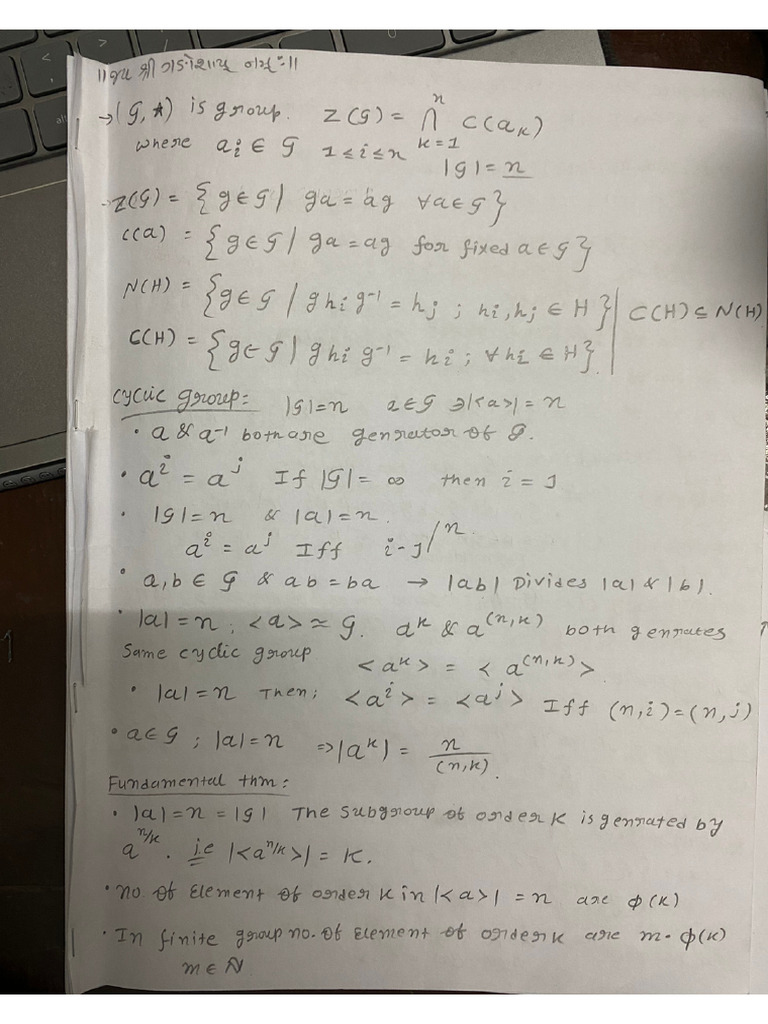 ॥જય શ્રી ગણેશાય નમઃ॥
→(G, *) is group. Z(G) = ⋂ₖ₌₁ⁿ C(aₖ)
where aᵢ ∈ G 1≤i≤n
|G| = n
→Z(G) = {g∈G | ga = ag ∀a∈G}
C(a) = {g∈G | ga = ag for fixed a∈G}
N(H) = {g∈G | ghᵢg⁻¹ = hⱼ ; hᵢ,hⱼ ∈ H} | C(H) ⊆ N(H)
C(H) = {g∈G | ghᵢg⁻¹ = hᵢ ; ∀hᵢ ∈ H}.
Cyclic group: |G|=n a∈G ∋|<a>| = n
• a & a⁻¹ both are genrator of G.
• aⁱ = aʲ If |G| = ∞ then i = j
• |G| = n & |a| = n.
aⁱ = aʲ Iff i-j/n.
• a,b ∈ G & ab = ba → |ab| Divides |a| & |b|.
• |a| = n ; <a> ≃ G. aᵏ & a⁽ⁿ,ᵏ⁾ both genrates
Same cyclic group <aᵏ> = <a⁽ⁿ,ᵏ⁾>
• |a| = n Then; <aⁱ> = <aʲ> Iff (n,i) = (n,j)
• a∈G ; |a| = n ⇒|aᵏ| = n/(n,k).
Fundamental thm:
• |a| = n = |G| The Subgroup of order k is genrated by
aⁿ/ᵏ. i.e |<aⁿ/ᵏ>| = k.
• No of Element of order k in |<a>| = n are ϕ(k)
• In finite group no. of Element of order k are m·ϕ(k)
m ∈ N